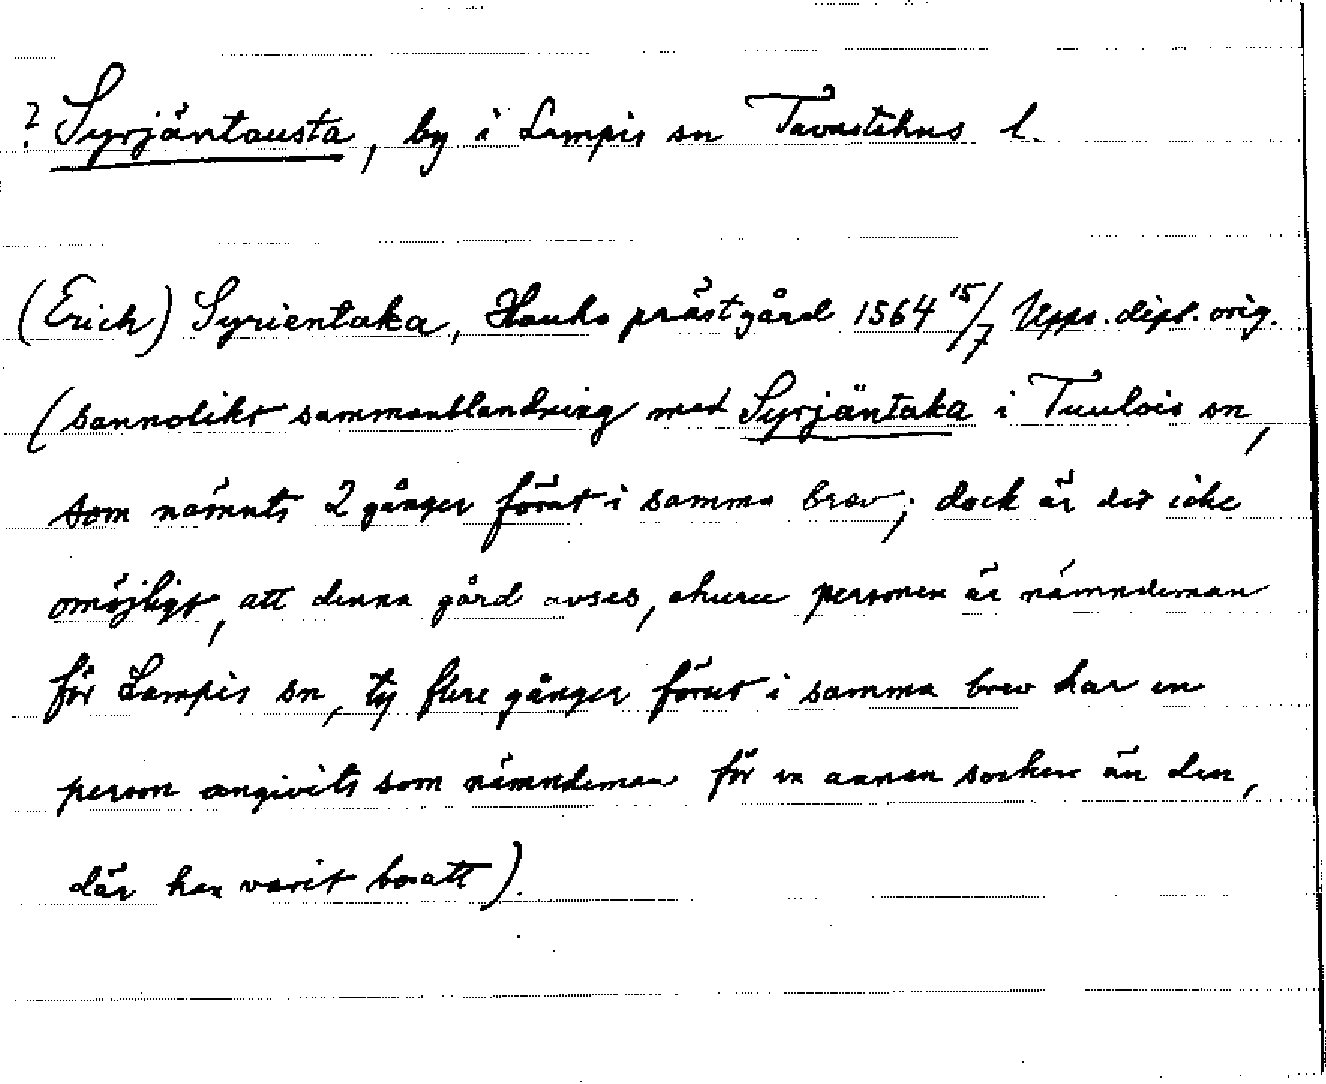 ? Syrjäntausta, by i Lampis sn Tavastehus l.
(Erich) Syrientaka, Hauho prästgård 1564 15/7 Upps. dipl. orig.
(sannolikt sammanblandning med Syrjäntaka i Tuulois sn,
som nämnts 2 gånger förut i samma brev; dock är det icke
omöjligt, att denna gård avses, ehuru personen är nämndeman
för Lampis sn, ty flere gånger förut i samma brev har en
person angivits som nämndeman för en annan socken än den,
där han varit bosatt).